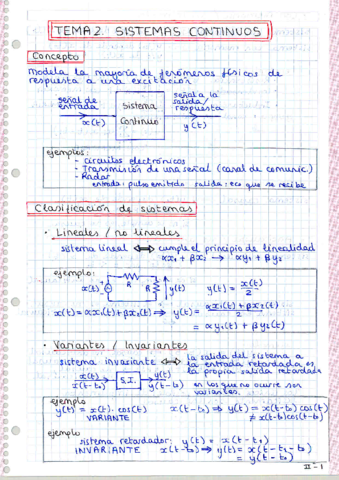 TEMA 2. SISTEMAS CONTINUOS
Concepto
Modela la mayoría de fenómenos físicos de
respuesta a una excitación
señal de
entrada
x(t)
Sistema
Continuo
señal a la
salida/
respuesta
y(t)
ejemplos:
- circuitos electrónicos
- Transmisión de una señal (canal de comunic.)
- Radar
entrada: pulso emitido salida: eco que se recibe
Clasificación de sistemas
· Lineales / no lineales
sistema lineal ⟺ cumple el principio de linealidad
αx₁ + βx₂ → αy₁ + βy₂
ejemplo:
x(t) R R y(t) y(t) = x(t)/2
x(t) = αx₁(t) + βx₂(t) ⟹ y(t) = (αx₁(t) + βx₂(t))/2
= αy₁(t) + βy₂(t)
· Variantes / Invariantes
sistema invariante ⟺ la salida del sistema a
la entrada retardada es
la propia salida retardada
x(t) S.I. y(t)
x(t-t₀) y(t-t₀)
en los que no ocurre son
variantes.
ejemplo
y(t) = x(t)·cos(t) x(t-t₀) ⟹ y(t) = x(t-t₀)cos(t)
VARIANTE ≠ x(t-t₀)cos(t-t₀)
ejemplo
sistema retardador: y(t) = x(t-t₁)
INVARIANTE x(t-t₀) ⟹ y(t) = x(t-t₁-t₀)
= y(t-t₀)
II - 1